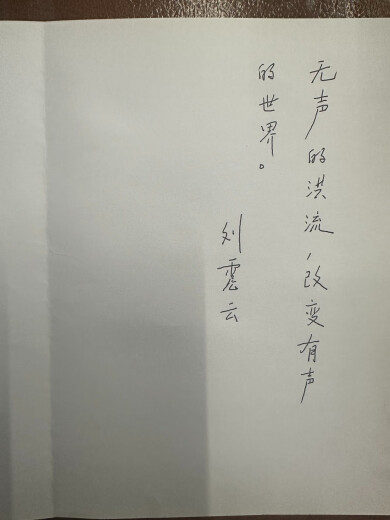 无声的洪流，改变有声
的世界。
刘震云